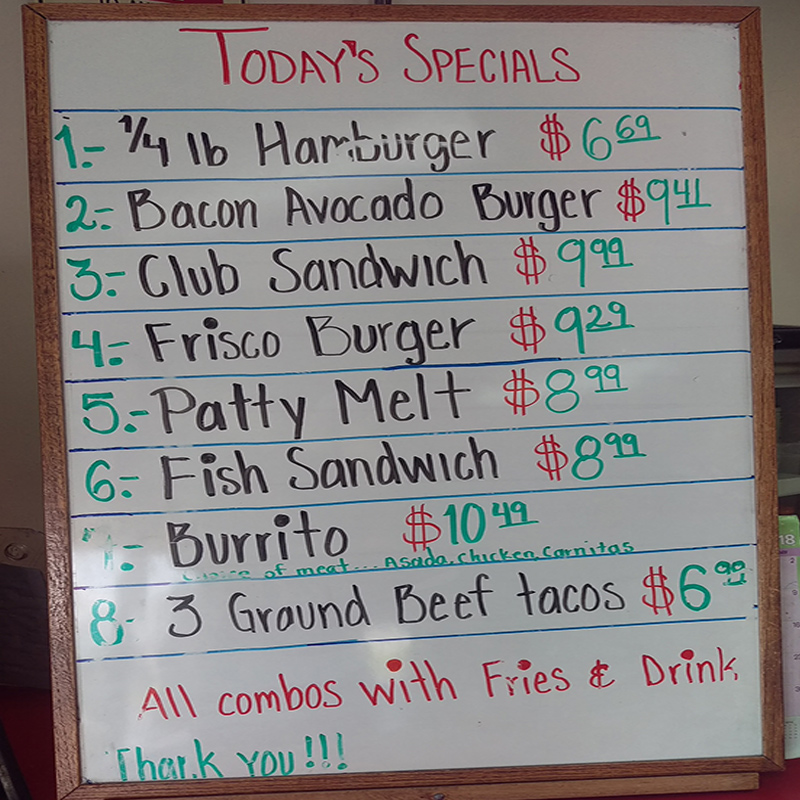 TODAY'S SPECIALS
1.- 1/4 lb Hamburger $6.69
2.- Bacon Avocado Burger $9.41
3.- Club Sandwich $9.99
4.- Frisco Burger $9.29
5.- Patty Melt $8.99
6.- Fish Sandwich $8.99
7.- Burrito $10.49
Choice of meat... Asada, Chicken, Carnitas
8- 3 Ground Beef tacos $6.99
All combos with Fries & Drink
Thank you!!!
18